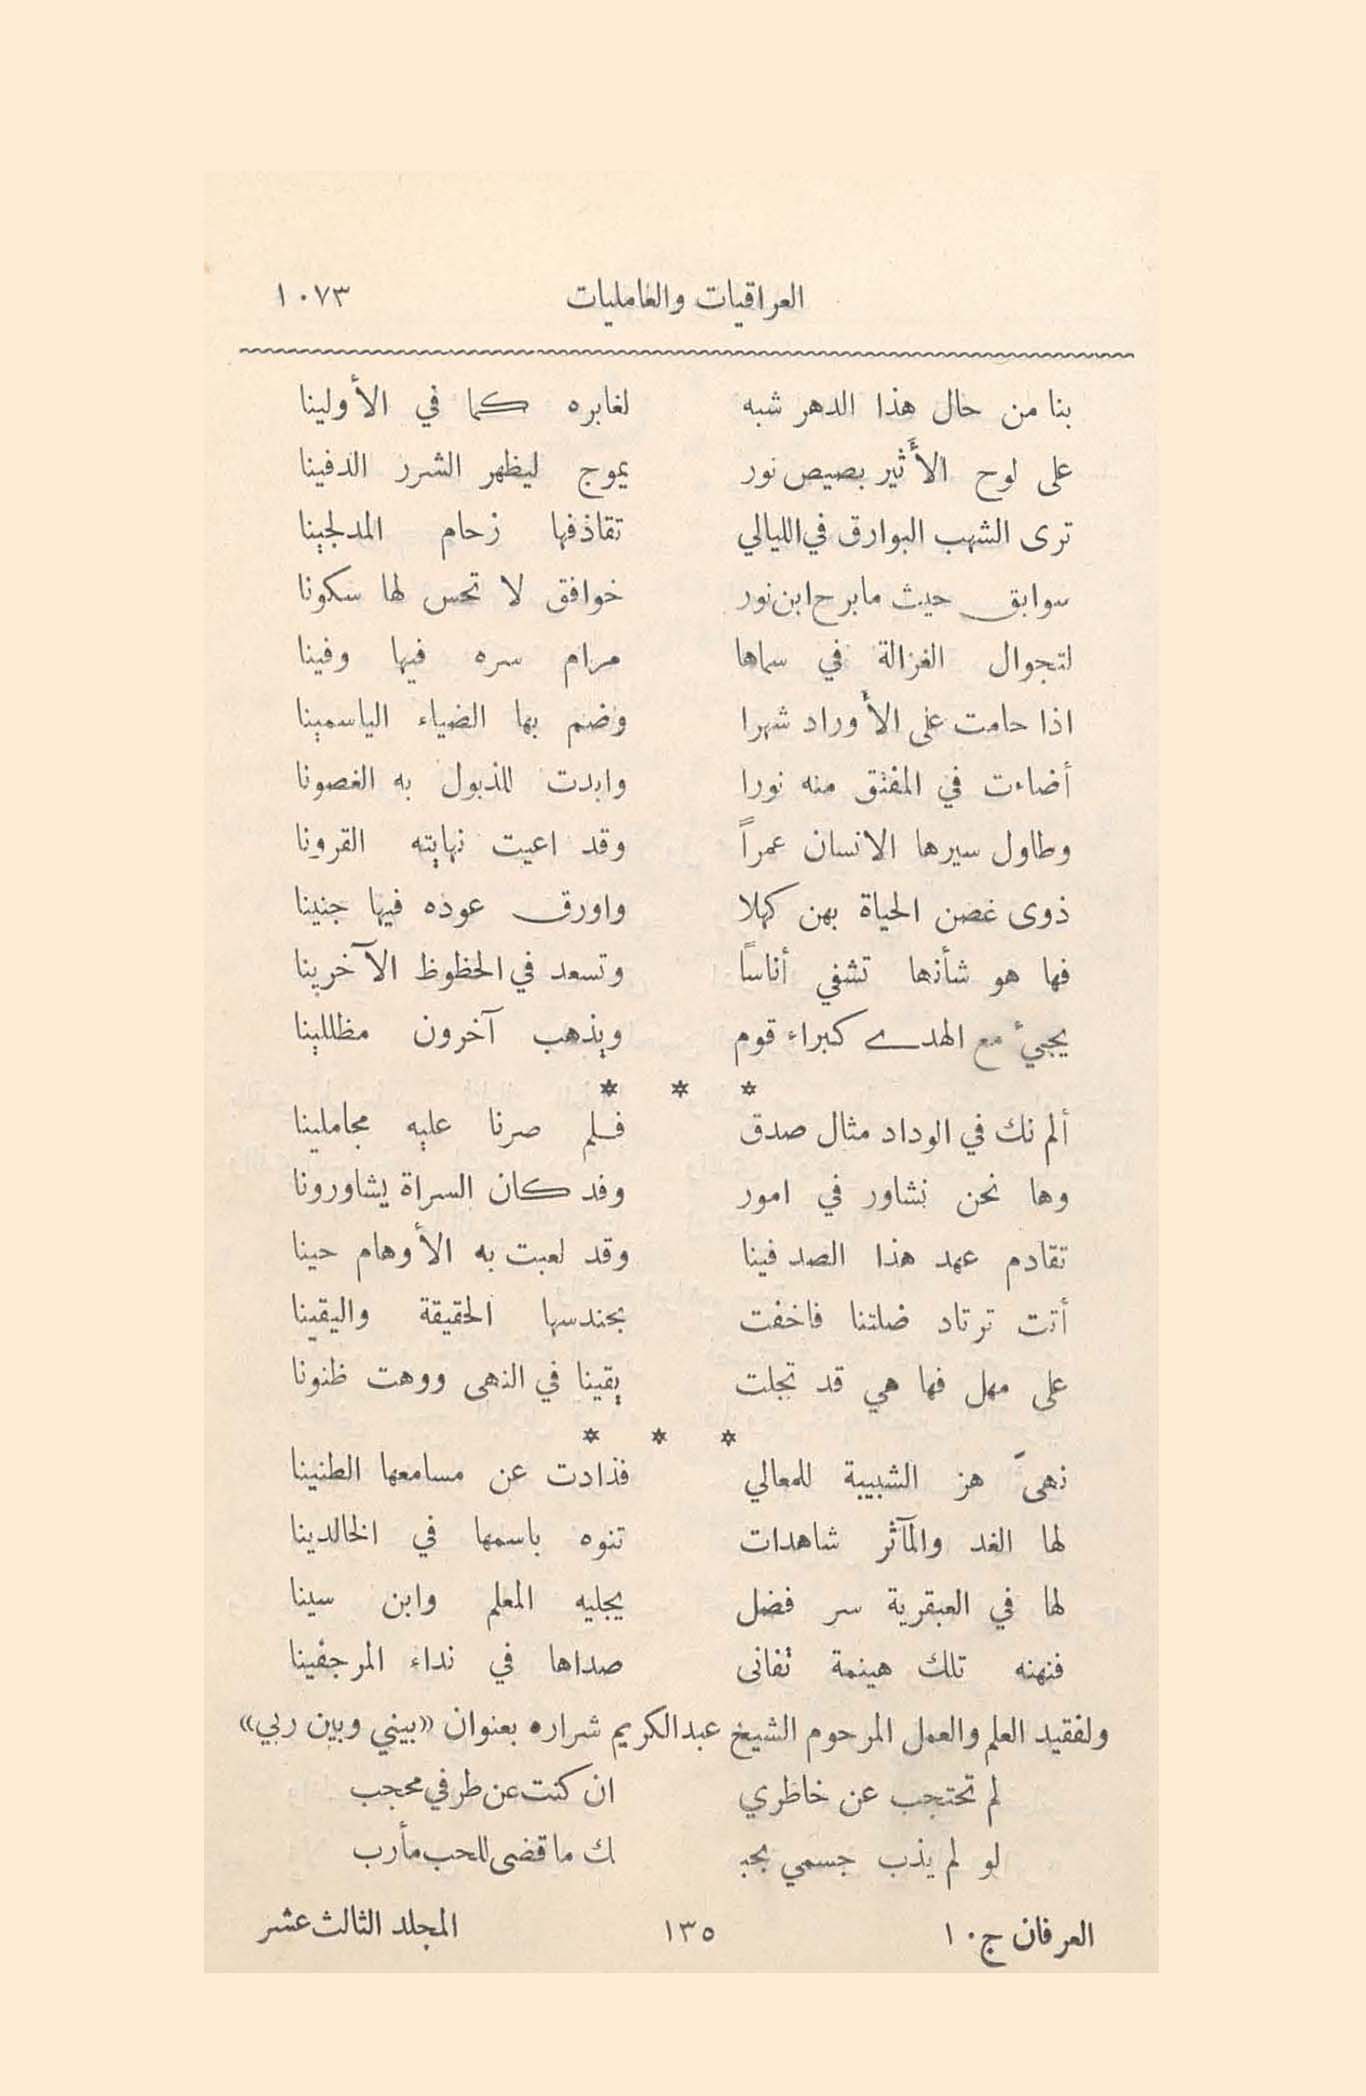 العراقيات والعامليات ١٠٧٣
بنا من حال هذا الدهر شبه لغابره كما في الأولينا
على لوح الأَثير بصيص نور يموج ليظهر الشرر الدفينا
ترى الشهب البوارق في الليالي تقاذفها زحام المدلجينا
سوابق حيث مابرح ابن نور خوافق لا تحس لها سكونا
لتجوال الغزالة في سماها مرام سره فيها وفينا
اذا حامت على الأوراد شهرا وضم بها الضياء الياسمينا
أضاءت في المفتق منه نورا وابدت للذبول به الغصونا
وطاول سيرها الانسان عمراً وقد اعيت نهايته القرونا
ذوى غصن الحياة بهن كهلا واورق عوده فيها جنينا
فها هو شأنها تشفي أناساً وتسعد في الحظوظ الآخرينا
يجيئ مع الهدى كبراء قوم ويذهب آخرون مظللينا
* * *
ألم نك في الوداد مثال صدق فلم صرنا عليه مجاملينا
وها نحن نشاور في امور وقد كان السراة يشاورونا
تقادم عهد هذا الصد فينا وقد لعبت به الأوهام حينا
أتت ترتاد ضلتنا فاخفت بجندسها الحقيقة واليقينا
على مهل فها هي قد تجلت يقينا في النهى ووهت ظنونا
* * *
نهىً هز الشبيبة للمعالي فذادت عن مسامعها الطنينا
لها الغد والمآثر شاهدات تنوه باسمها في الخالدينا
لها في العبقرية سر فضل يجليه المعلم وابن سينا
فنهنه تلك هينمة تفانى صداها في نداء المرجفينا
ولفقيد العلم والعمل المرحوم الشيخ عبدالكريم شراره بعنوان «بيني وبين ربي»
لم تحتجب عن خاطري ان كنت عن طرفي محجب
لو لم يذب جسمي بحبـ ـك ما قضى للحب مأرب
العرفان ج١٠ ١٣٥ المجلد الثالث عشر